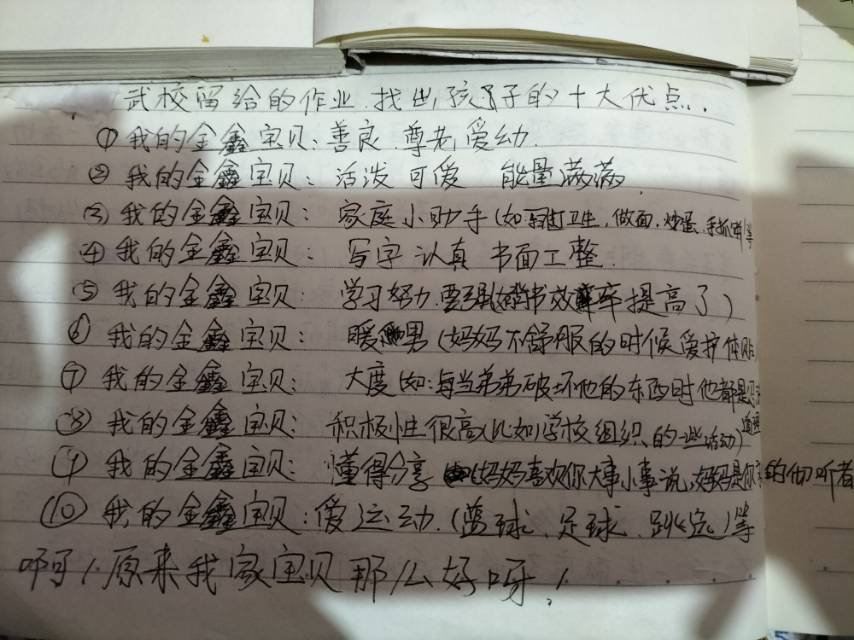 武校留给的作业.找出孩子的十大优点..
①我的金鑫宝贝:善良.尊老爱幼.
②我的金鑫宝贝:活泼可爱 能量满满.
③我的金鑫宝贝:家庭小助手(如打卫生,做面.炒蛋、手抓饼)等
④我的金鑫宝贝:写字认真 书面工整.
⑤我的金鑫宝贝 学习努力.要强(背书效率提高了)
⑥我的金鑫宝贝:暖男(妈妈不舒服的时候爱护体贴
⑦我的金鑫宝贝:大度(如:每当弟弟破坏他的东西时他都是
⑧我的金鑫宝贝:积极性很高(比如学校组织的一些活动)
⑨我的金鑫宝贝:懂得分享(妈妈喜欢你大事小事说,妈妈是你的倾听者
⑩我的金鑫宝贝:爱运动.(蓝球、足球、跳远)等
啊!原来我家宝贝那么好呀!
5